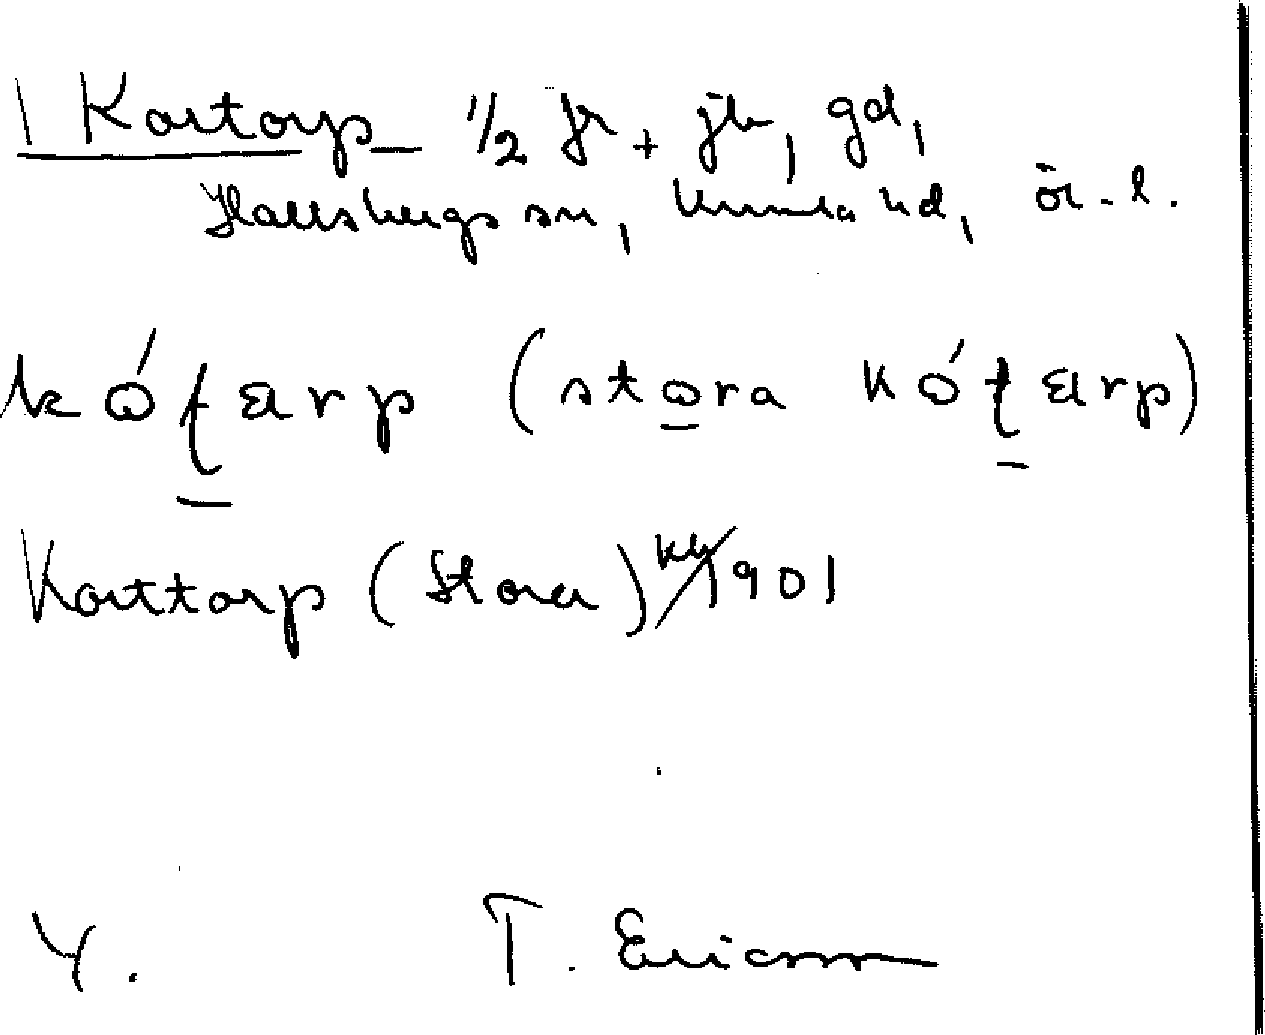 1 Kortorp 1/2 fr + jb, gd,
Hallsbergs sn, Kumla hd, ör. l.
kóʈarp (stora kóʈarp)
Korttorp (Stora) kb/1901
Y. T. Ericsson